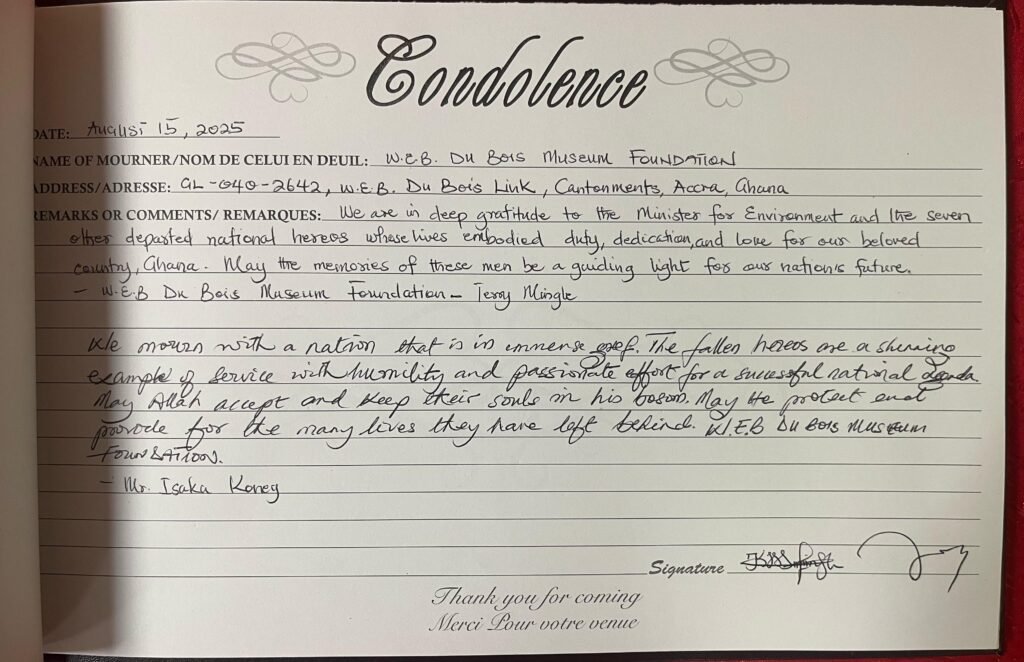 Condolence
DATE: August 15, 2025
NAME OF MOURNER/NOM DE CELUI EN DEUIL: W.E.B. Du Bois Museum Foundation
ADDRESS/ADRESSE: GL-040-2642, W.E.B. Du Bois Link, Cantonments, Accra, Ghana
REMARKS OR COMMENTS/ REMARQUES: We are in deep gratitude to the Minister for Environment and the seven
other departed national hereos whose lives embodied duty, dedication, and love for our beloved
country, Ghana. May the memories of these men be a guiding light for our nation's future.
- W.E.B Du Bois Museum Foundation - Terry Mingle
We mourn with a nation that is in immense grief. The fallen hereos are a shining
example of service with humility and passionate effort for a successful national
May Allah accept and keep their souls in his bosom. May He protect and
provide for the many lives they have left behind. W.E.B Du Bois Museum
Foundation.
- Mr. Isaka Koney
Signature
Thank you for coming
Merci Pour votre venue